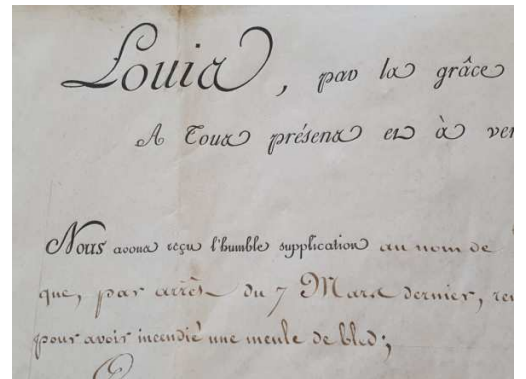 Louis, par la grâce
A Tous présens et à ve
Nous avons reçu l'humble supplication au nom de
que, par arrêt du 7 Mars dernier, re
pour avoir incendié une meule de bled;